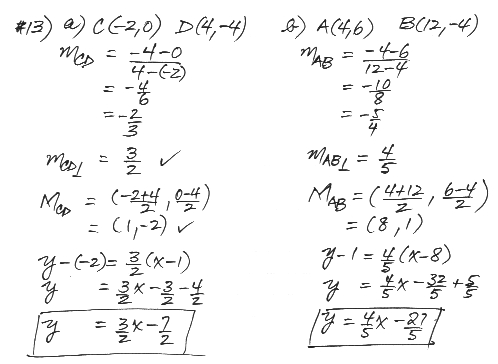 #13) a) C(-2,0) D(4,-4)
m_CD = (-4-0)/(4-(-2))
= -4/6
= -2/3
m_CD⊥ = 3/2 ✓
M_CD = ((-2+4)/2, (0-4)/2)
= (1,-2) ✓
y-(-2) = 3/2(x-1)
y = 3/2x - 3/2 - 4/2
y = 3/2x - 7/2
b) A(4,6) B(12,-4)
m_AB = (-4-6)/(12-4)
= -10/8
= -5/4
m_AB⊥ = 4/5
M_AB = ((4+12)/2, (6-4)/2)
= (8,1)
y-1 = 4/5(x-8)
y = 4/5x - 32/5 + 5/5
y = 4/5x - 27/5